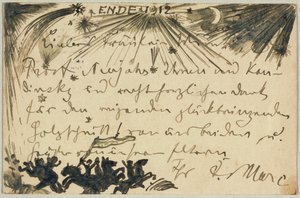 ENDE 1912
Liebes Fräulein
Prosit Neujahr Ihnen und Kan-
dinsky und recht herzlichen Dank
für den reizenden glückbringenden
Holzschnitt von uns beiden u.
Eltern.
Ihr F. Marc